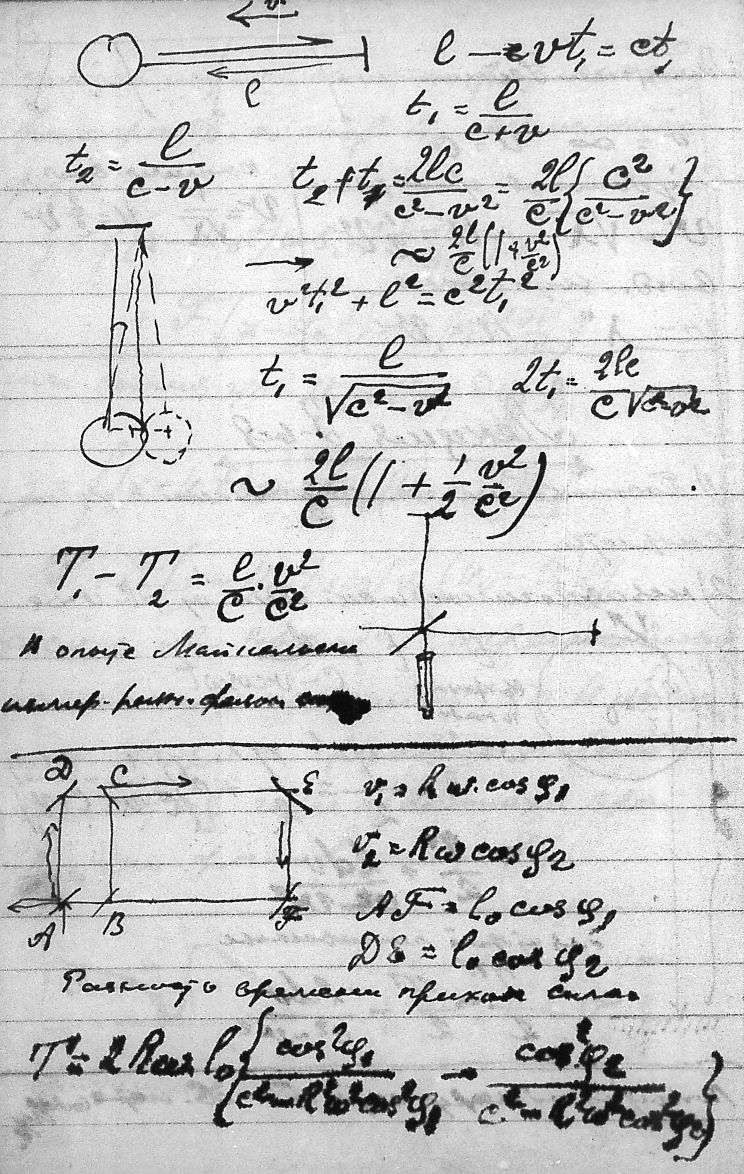 v
l − vt₁ = ct₁
l
t₁ = l/(c+v)
t₂ = l/(c−v)
t₂ + t₁ = 2lc/(c²−v²) = 2l/c {c²/(c²−v²)}
~ 2l/c (1 + v²/c²)
v²t₁² + l² = c²t₁²
t₁ = l/√(c²−v²) 2t₁ = 2lc/(c√(c²−v²))
~ 2l/c (1 + 1/2 v²/c²)
T₁ − T₂ = l/c · v²/c²
В опыте Майкельсона
измер. разн. фаз
D C E
v₁ = Rω cos φ₁
v₂ = Rω cos φ₂
A B F
AF = l₀ cos φ₁
DE = l₀ cos φ₂
Разность времени прихода
T = 2Rω l₀ {cos²φ₁/(c²−R²ω²cos²φ₁) − cos²φ₂/(c²−R²ω²cos²φ₂)}